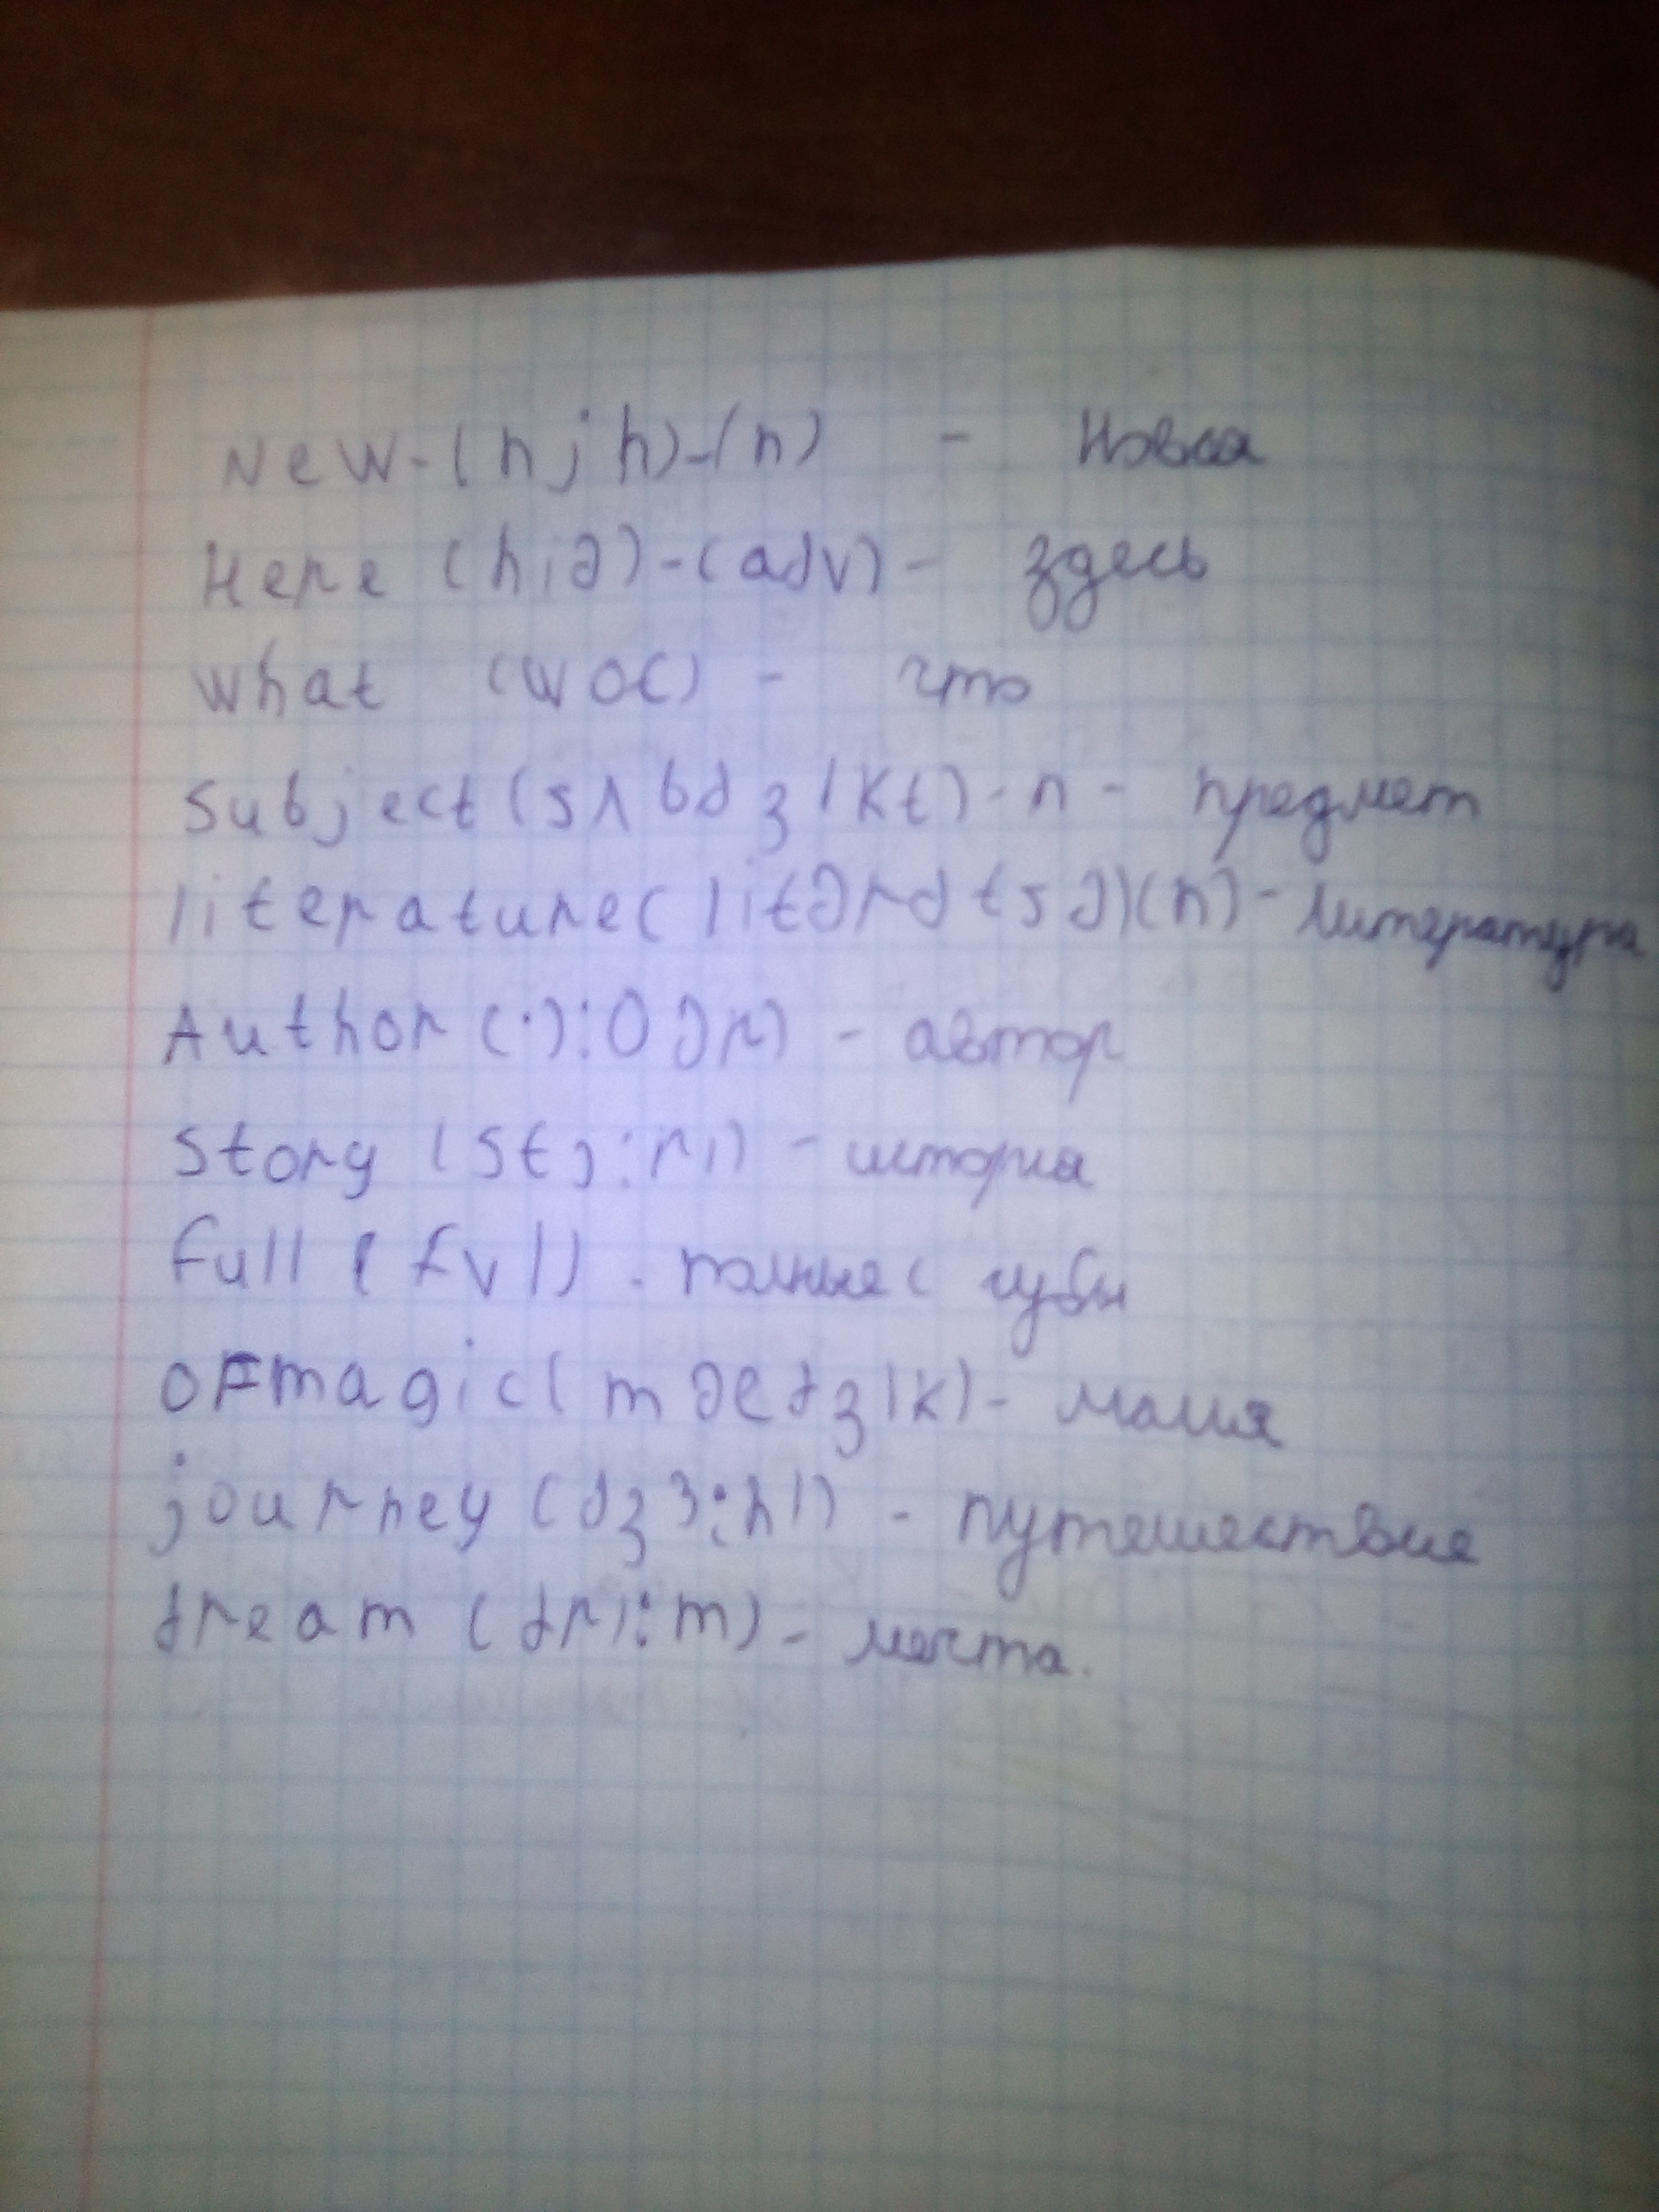 New-(njh)-(n) - Новая
Here (hiə)-(adv) - здесь
what (wot) - что
Subject (sʌbdʒikt)-n - предмет
literature (litərətsə)(n) - литература
Author (ɔ:θər) - автор
Story (stɔ:ri) - история
full (fvl) - полные (
OF magic (mædʒik) - магия
journey (dʒɜ:ni) - путешествие
dream (dri:m) - мечта.